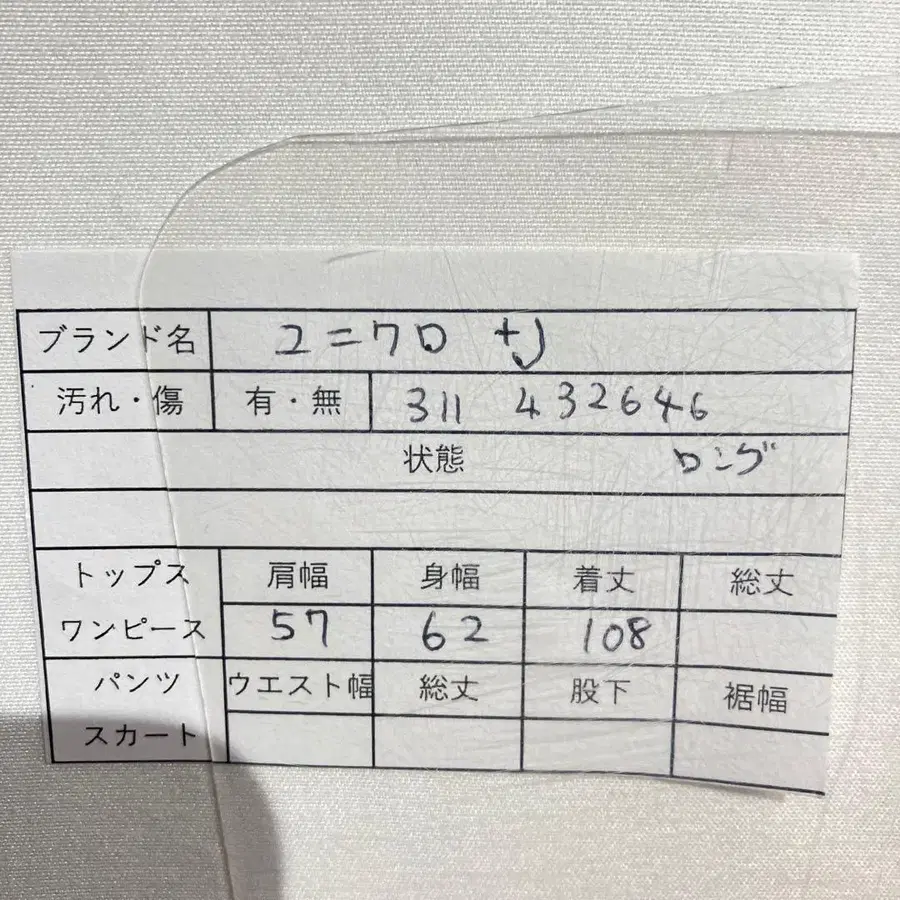 ブランド名 ユニクロ +J
汚れ・傷 有・無 311 432646
状態 ロング
トップス 肩幅 身幅 着丈 総丈
ワンピース 57 62 108
パンツ ウエスト幅 総丈 股下 裾幅
スカート